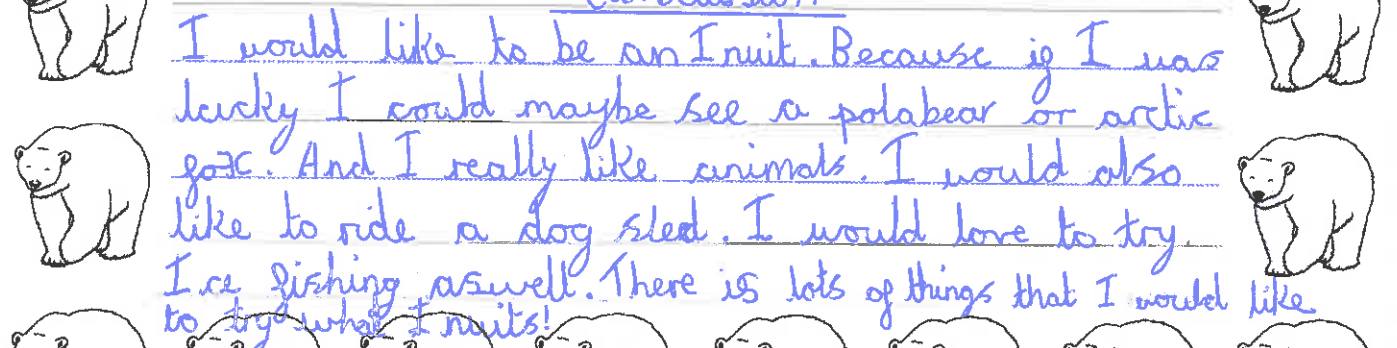 I would like to be an Inuit. Because if I was
lucky I could maybe see a polabear or arctic
fox. And I really like animals. I would also
like to ride a dog sled. I would love to try
Ice fishing aswell. There is lots of things that I would like
to try what Inuits!